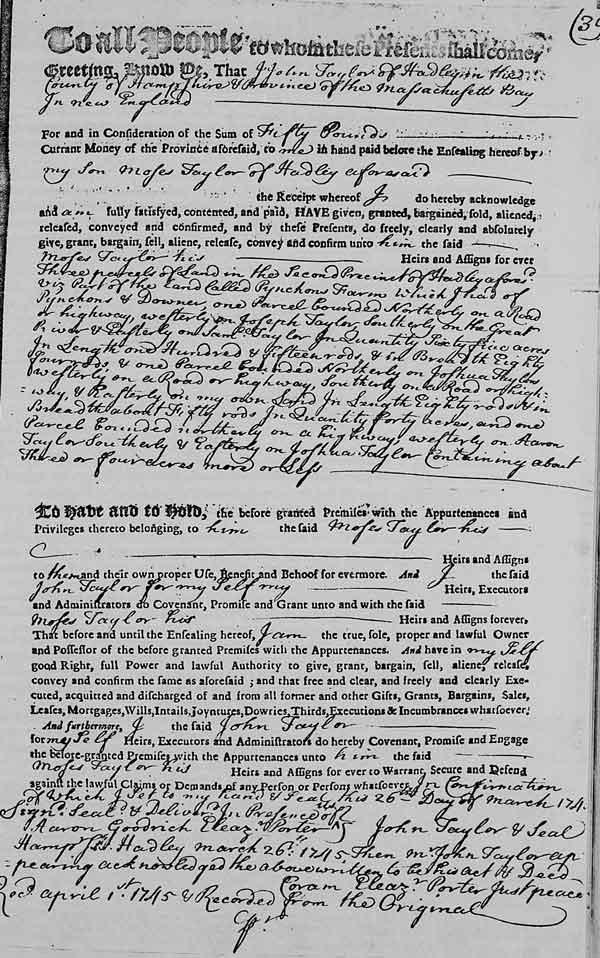 (39
To all People to whom these Presents shall come,
Greeting, Know Ye, That I John Taylor of Hadley in the
County of Hampshire & Province of the Massachusetts Bay
In new England
For and in Consideration of the Sum of Fifty Pounds
Currant Money of the Province aforesaid, to me in hand paid before the Ensealing hereof by
my Son Moses Taylor of Hadley aforesaid
the Receipt whereof I do hereby acknowledge
and am fully satisfyed, contented, and paid, HAVE given, granted, bargained, sold, aliened,
released, conveyed and confirmed, and by these Presents, do freely, clearly and absolutely
give, grant, bargain, sell, aliene, release, convey and confirm unto him the said
Moses Taylor his Heirs and Assigns for ever
Three parcels of Land in the Second Precinct of Hadley aforesd
viz Part of the Land Called Pynchons Farm which I had of
Pynchons & Downer, one Parcel bounded Northerly on a Road
or highway, westerly on Joseph Taylor Southerly on the Great
River & Easterly on Saml Taylor In Quantity Sixty five acres
In Length one Hundred & fifteen rods, & in Breadth Eighty
four rods, & one Parcel bounded Northerly on Joshua Taylor
westerly on a Road or highway, Southerly on a Road or high-
way, & Easterly on my own Land In Length Eighty rods & in
Breadth about Fifty rods In Quantity forty acres, and one
Parcel bounded northerly on a highway, westerly on Aaron
Taylor Southerly & Easterly on Joshua Taylor Containing about
Three or four acres more or Less
To Have and to Hold, the before granted Premises with the Appurtenances and
Privileges thereto belonging, to him the said Moses Taylor his
Heirs and Assigns
to them and their own proper Use, Benefit and Behoof for evermore. And I the said
John Taylor for my Self my Heirs, Executors
and Administrators do Covenant, Promise and Grant unto and with the said
Moses Taylor his Heirs and Assigns forever,
That before and until the Ensealing hereof, I am the true, sole, proper and lawful Owner
and Possessor of the before granted Premises with the Appurtenances. And have in my Self
good Right, full Power and lawful Authority to give, grant, bargain, sell, aliene, release,
convey and confirm the same as aforesaid ; and that free and clear, and freely and clearly Exe-
cuted, acquitted and discharged of and from all former and other Gifts, Grants, Bargains, Sales,
Leases, Mortgages, Wills, Intails, Joyntures, Dowries, Thirds, Executions & Incumbrances whatsoever.
And furthermore, I the said John Taylor
for my Self Heirs, Executors and Administrators do hereby Covenant, Promise and Engage
the before-granted Premises with the Appurtenances unto him the said
Moses Taylor his Heirs and Assigns for ever to Warrant, Secure and Defend
against the lawful Claims or Demands of any Person or Persons whatsoever. In Confirmation
of which I Set to my hand & Seal this 26th Day of march 174
Signd Seald & Deliverd in Presence of us
Aaron Goodrich Eleazr Porter } John Taylor & Seal
Hampsr Ss. Hadley march 26th 1745, Then mr John Taylor ap
pearing acknowledged the above written to be his act & Deed
Coram Eleazr Porter Just peace
Recd april 1st 1745 & Recorded from the Original